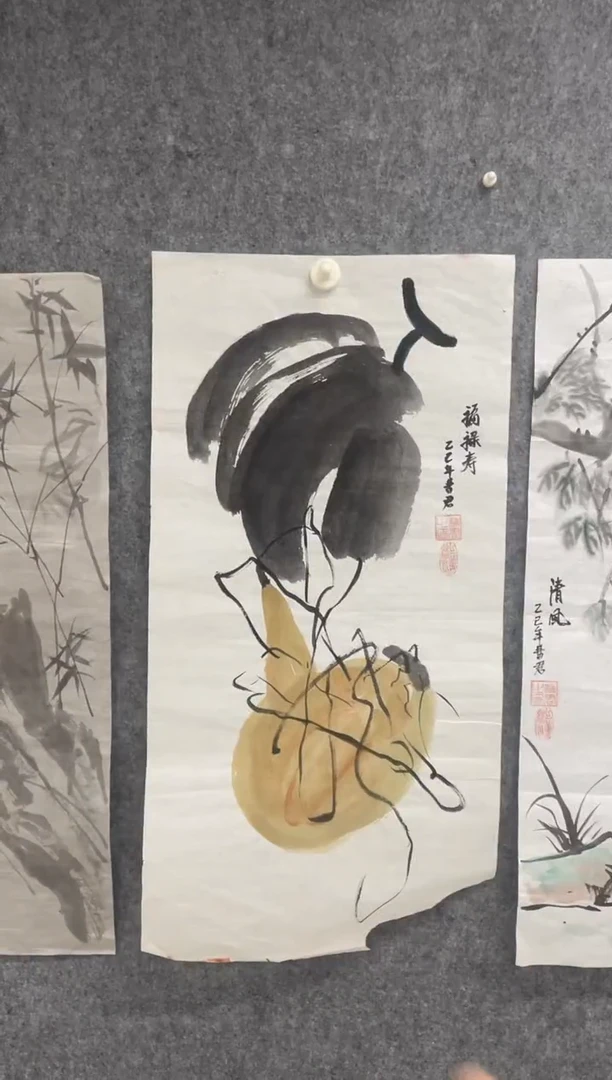 福禄寿
乙巳年普君
清风
乙巳年普君